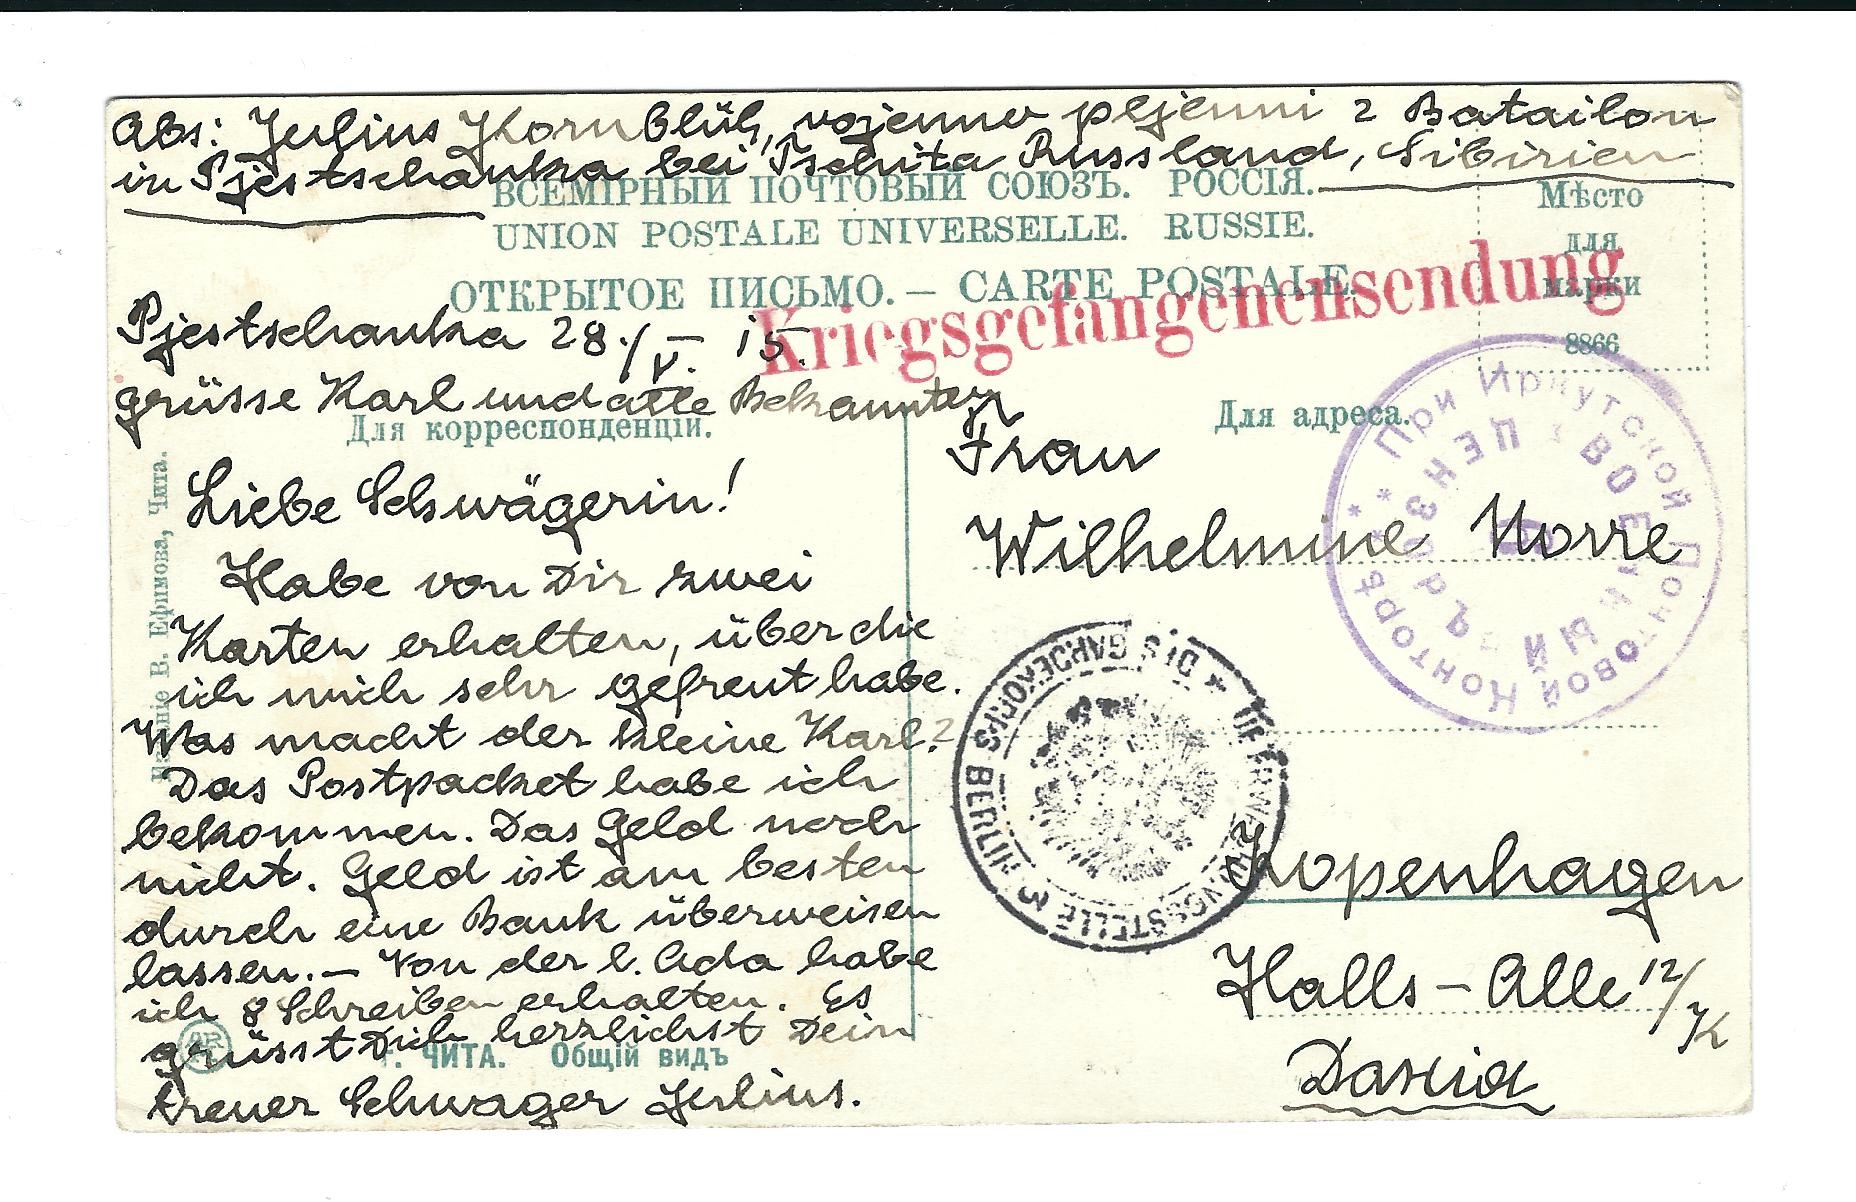 Abs: Julius Kornblüh, vojenno pljenni 2 Batailon
in Pjestschanka bei Tschita Russland, Sibirien
ВСЕМІРНЫЙ ПОЧТОВЫЙ СОЮЗЪ. РОССІЯ.
UNION POSTALE UNIVERSELLE. RUSSIE.
ОТКРЫТОЕ ПИСЬМО. — CARTE POSTALE.
Мѣсто
для
марки
8866
Kriegsgefangenensendung
Pjestschanka 28./V. 15.
grüsse Karl und alle Bekannten
Для корреспонденціи.
Для адреса.
Liebe Schwägerin!
Habe von Dir zwei
Karten erhalten, über die
ich mich sehr gefreut habe.
Was macht der kleine Karl?
Das Postpacket habe ich
bekommen. Das Geld noch
nicht. Geld ist am besten
durch eine Bank überweisen
lassen. — Von der l. Ada habe
ich 8 Schreiben erhalten. Es
grüsst Dich herzlichst Dein
treuer Schwager Julius.
г. ЧИТА. Общій видъ
Изданіе В. Ефимова, Чита.
Frau
Wilhelmine Norre
Kopenhagen
Halls - Alle 12/K
Данія
При Иркутской Почтовой Конторѣ
ВОЕННЫЙ ЦЕНЗОРЪ
ÜBERWACHUNGSSTELLE
DES GARDEKORPS BERLIN 3